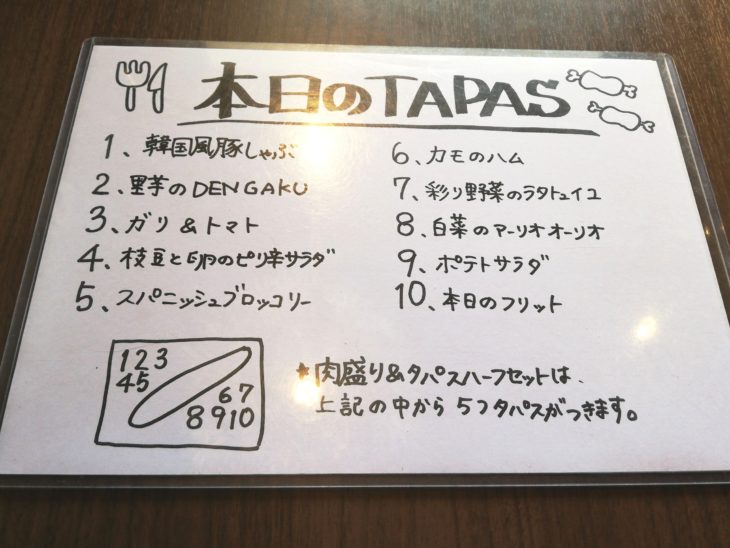 本日のTAPAS
1、韓国風豚しゃぶ
2、里芋のDENGAKU
3、ガリ&トマト
4、枝豆と卵のピリ辛サラダ
5、スパニッシュブロッコリー
6、カモのハム
7、彩り野菜のラタトゥイユ
8、白菜のアーリオオーリオ
9、ポテトサラダ
10、本日のフリット
123
45
67
8910
★肉盛り&タパスハーフセットは、
上記の中から5つタパスがつきます。